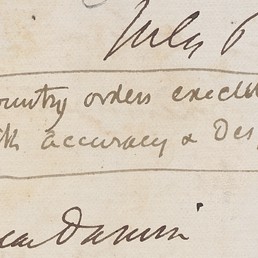 July 6
ountry orders execut
th accuracy & Des
Darwin